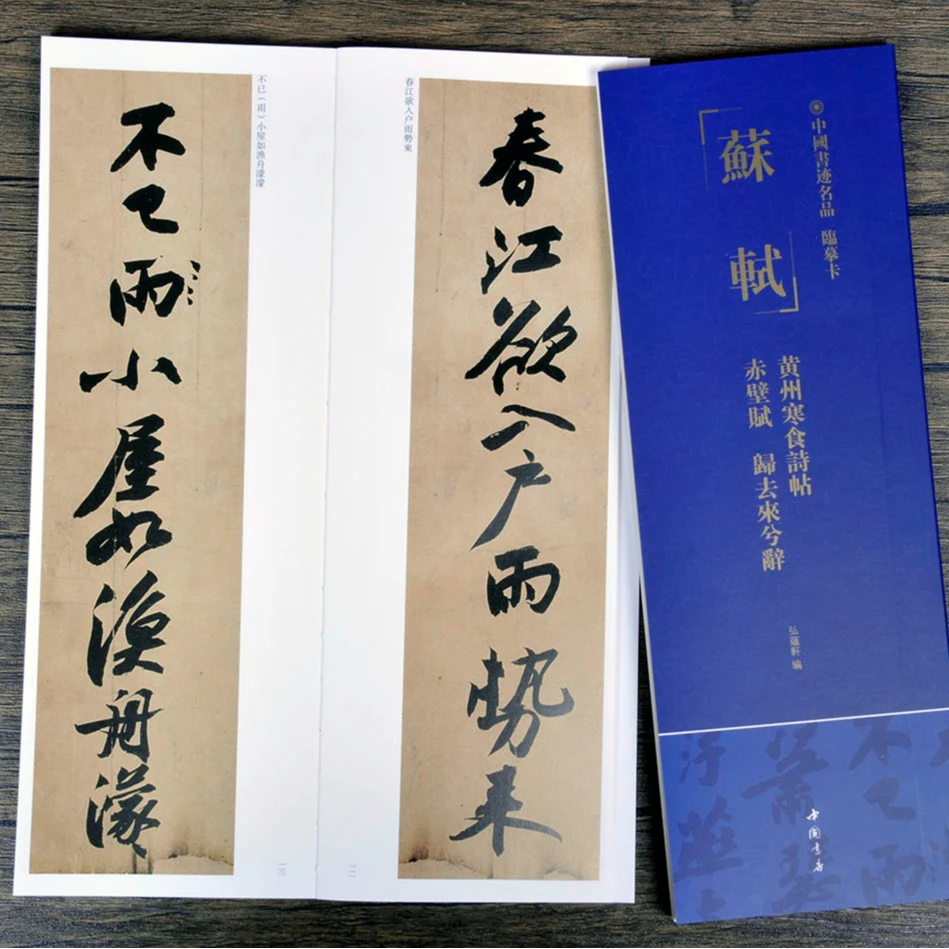 春江欲入户雨勢來
春江欲入户雨势来
一二
不已（雨）小屋如漁舟濛濛
不已雨小屋如漁舟濛
一三
中國書迹名品 臨摹卡
蘇軾
黄州寒食詩帖
赤壁賦 歸去來兮辭
弘蘊軒 编
中国書店
不已雨